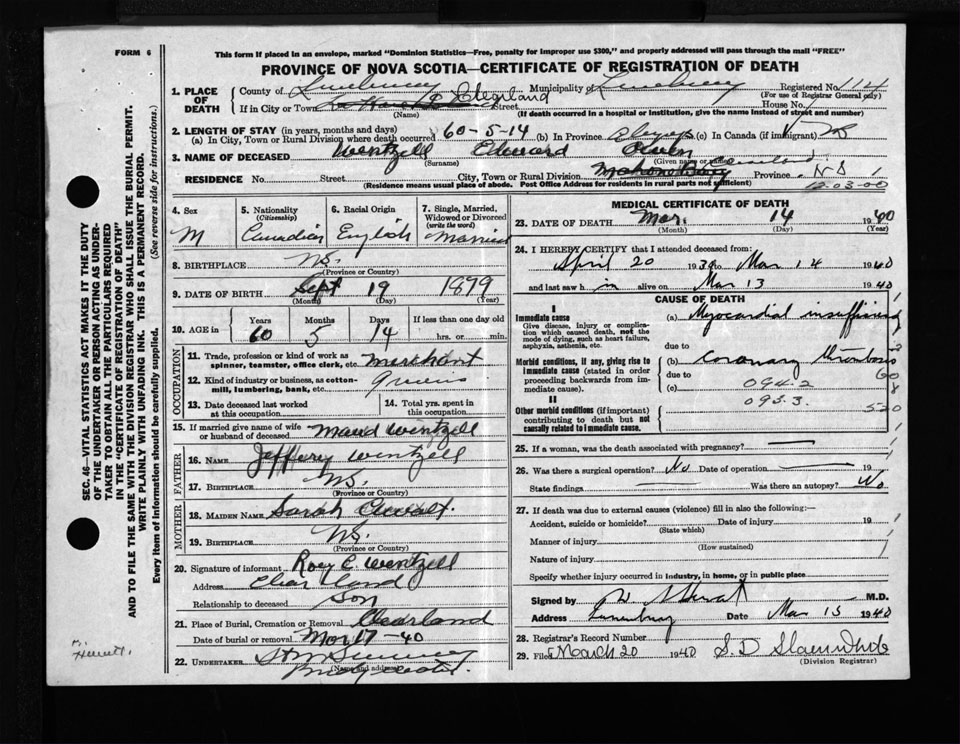 FORM 6
This form if placed in an envelope, marked "Dominion Statistics—Free, penalty for improper use $300," and properly addressed will pass through the mail "FREE"
PROVINCE OF NOVA SCOTIA—CERTIFICATE OF REGISTRATION OF DEATH
1. PLACE OF DEATH
County of Lunenburg Municipality of Lunenburg Registered No.
(For use of Registrar General only)
If in City or Town Clearland Street House No.
(Name) (If death occurred in a hospital or institution, give the name instead of street and number)
2. LENGTH OF STAY (in years, months and days)
(a) In City, Town or Rural Division where death occurred 60-5-14 (b) In Province always (c) In Canada (if immigrant)
3. NAME OF DECEASED Wentzell Edward
(Surname) (Given name or names)
RESIDENCE No. Street City, Town or Rural Division Mahone Bay Clearland Province NS
(Residence means usual place of abode. Post Office Address for residents in rural parts not sufficient)
12.03-00
4. Sex M
5. Nationality (Citizenship) Canadian
6. Racial Origin English
7. Single, Married, Widowed or Divorced (write the word) Married
8. BIRTHPLACE NS.
(Province or Country)
9. DATE OF BIRTH Sept 19 1879
(Month) (Day) (Year)
10. AGE in Years Months Days If less than one day old
60 5 14 hrs. or min.
OCCUPATION
11. Trade, profession or kind of work as spinner, teamster, office clerk, etc. Merchant
12. Kind of industry or business, as cotton-mill, lumbering, bank, etc.
13. Date deceased last worked at this occupation
14. Total yrs. spent in this occupation
15. If married give name of wife or husband of deceased Maud Wentzell
FATHER
16. NAME Jeffery Wentzell
17. BIRTHPLACE NS.
(Province or Country)
MOTHER
18. MAIDEN NAME Sarah
19. BIRTHPLACE NS.
(Province or Country)
20. Signature of informant Roey E. Wentzell
Address Clear land
Relationship to deceased Son
21. Place of Burial, Cremation or Removal Clearland
Date of burial or removal Mar 17-40
22. UNDERTAKER
(Name and address)
MEDICAL CERTIFICATE OF DEATH
23. DATE OF DEATH Mar. 14 1940
(Month) (Day) (Year)
24. I HEREBY CERTIFY that I attended deceased from:
April 20 1939 to Mar 14 1940
and last saw h im alive on Mar 13 1940
CAUSE OF DEATH
I
Immediate cause (a) Myocardial insufficiency
Give disease, injury or complication which caused death, not the mode of dying, such as heart failure, asphyxia, asthenia, etc.
due to
Morbid conditions, if any, giving rise to immediate cause (stated in order proceeding backwards from immediate cause). (b) Coronary thrombosis
due to
(c) 094.2
II
095.3.
Other morbid conditions (if important) contributing to death but not causally related to immediate cause.
25. If a woman, was the death associated with pregnancy?
26. Was there a surgical operation? No Date of operation 19
State findings Was there an autopsy? No
27. If death was due to external causes (violence) fill in also the following:—
Accident, suicide or homicide? Date of injury 19
(State which)
Manner of injury
(How sustained)
Nature of injury
Specify whether injury occurred in industry, in home, or in public place
Signed by M.D.
Address Lunenburg Date Mar 15 1940
28. Registrar's Record Number
29. Filed March 20 1940
(Division Registrar)
SEC. 46—VITAL STATISTICS ACT MAKES IT THE DUTY
OF THE UNDERTAKER OR PERSON ACTING AS UNDERTAKER TO OBTAIN ALL THE PARTICULARS REQUIRED
IN THE "CERTIFICATE OF REGISTRATION OF DEATH"
AND TO FILE THE SAME WITH THE DIVISION REGISTRAR WHO SHALL ISSUE THE BURIAL PERMIT.
WRITE PLAINLY WITH UNFADING INK. THIS IS A PERMANENT RECORD.
Every item of information should be carefully supplied. (See reverse side for instructions.)